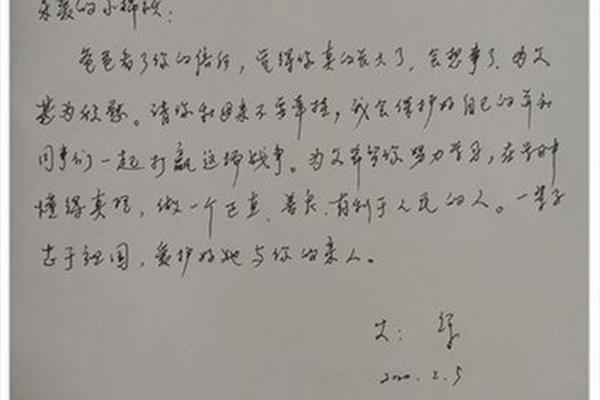 亲爱的小
爸爸看了你的信后,觉得你真的长大了,会想事了,为父
甚为欣慰。请你和母亲不要牵挂,我会保护好自己的并和
同事们一起打赢这场战争。为父希望你努力学习,在学习中
懂得真理,做一个正直、善良、有利于人民的人。一辈子
忠于祖国,爱护好她与你的亲人。
父:
2020.2.5